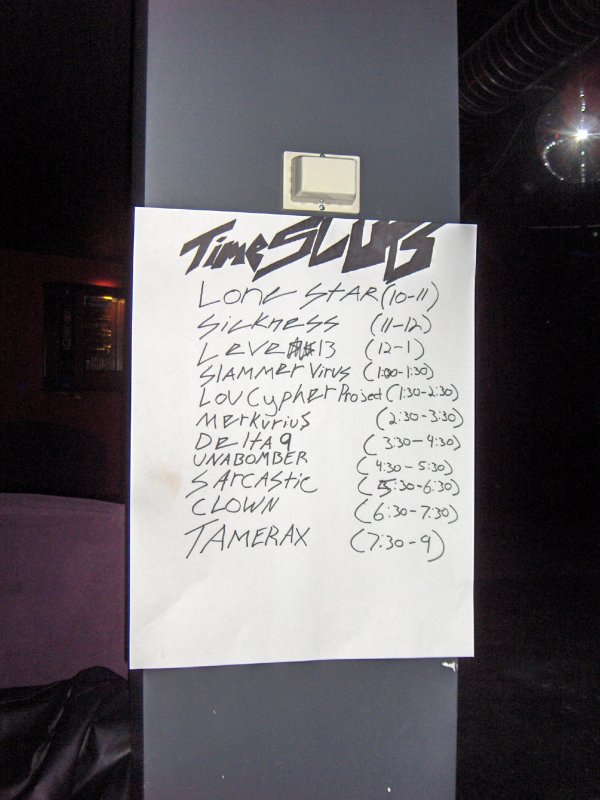 Time SLOTS
Lone STAR (10-11)
Sickness (11-12)
Level 13 (12-1)
SlAmmer Virus (1:00-1:30)
Lou Cypher Project (1:30-2:30)
Merkurius (2:30-3:30)
Delta 9 (3:30-4:30)
UNABOMBER (4:30-5:30)
SArcAstic (5:30-6:30)
CLOWN (6:30-7:30)
TAMERAX (7:30-9)